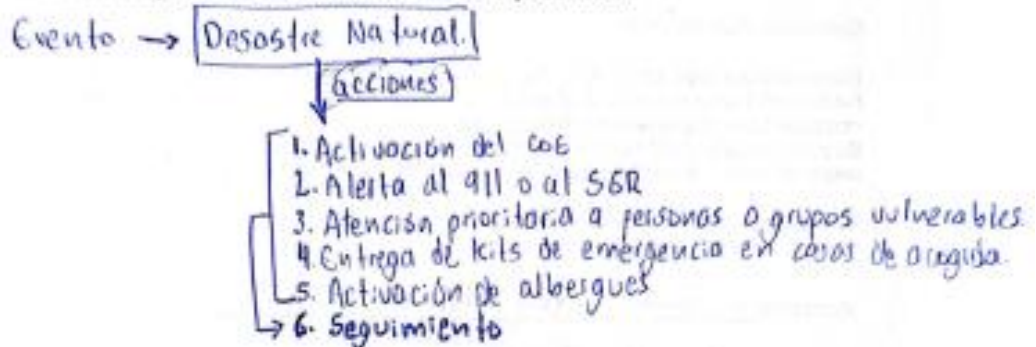 Evento → Desastre Natural.
acciones
1. Activación del COE
2. Alerta al 911 o al SGR
3. Atención prioritaria a personas o grupos vulnerables.
4. Entrega de kits de emergencia en casas de acogida.
5. Activación de albergues
6. Seguimiento